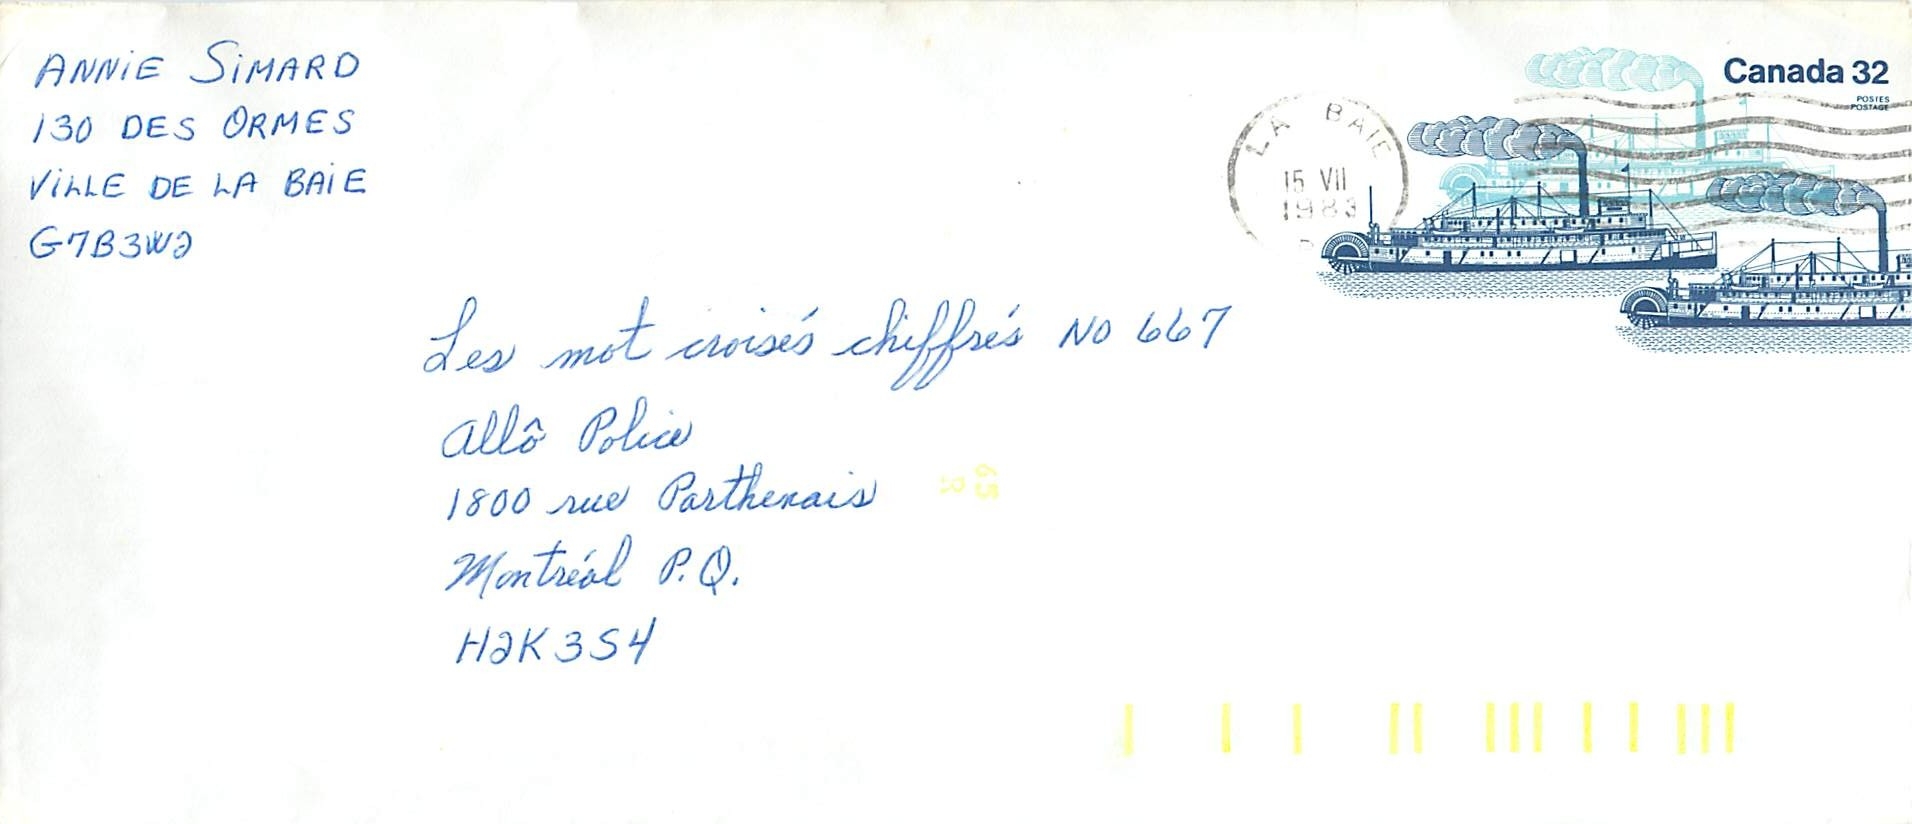 ANNIE SIMARD
130 DES ORMES
VILLE DE LA BAIE
G7B3W2
Canada 32
POSTES
POSTAGE
LA BAIE
15 VII
1983
Les mot croisés chiffrés NO 667
Allô Police
1800 rue Parthenais
Montréal P.Q.
H2K3S4
65
R